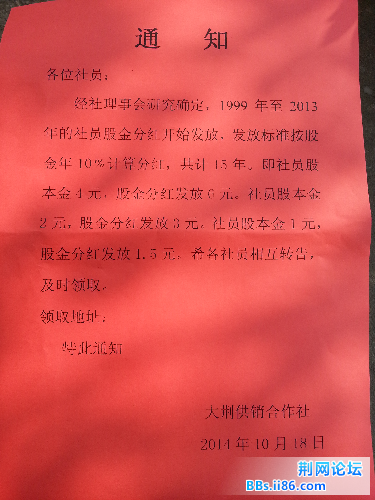 通 知
各位社员：
经社理事会研究确定，1999 年至 2013
年的社员股金分红开始发放，发放标准按股
金年10%计算分红，共计 15 年。即社员股
本金 4 元，股金分红发放 6 元。社员股本金
2 元，股金分红发放 3 元。社员股本金 1 元，
股金分红发放 1.5 元，希各社员相互转告，
及时领取。
领取地址：
特此通知
大荆供销合作社
2014 年 10 月 18 日
荆网论坛
BBs.ii86.com